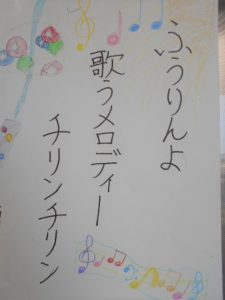 ふうりんよ
歌うメロディー
チリンチリン